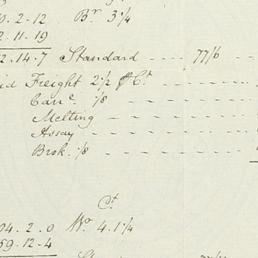 0.2.12 Br 3 1/4
2.11.19
2.14.7 Standard - - - - 77/6 - -
id Freight 2 1/2 P Ct - - - - -
Carre 1/8 - - - - - -
Melting - - - - - -
Assay - - - - - -
Brok. 1/8 - - - - - -
Ct
04.2.0 Wo 4.1/4
59.12.4